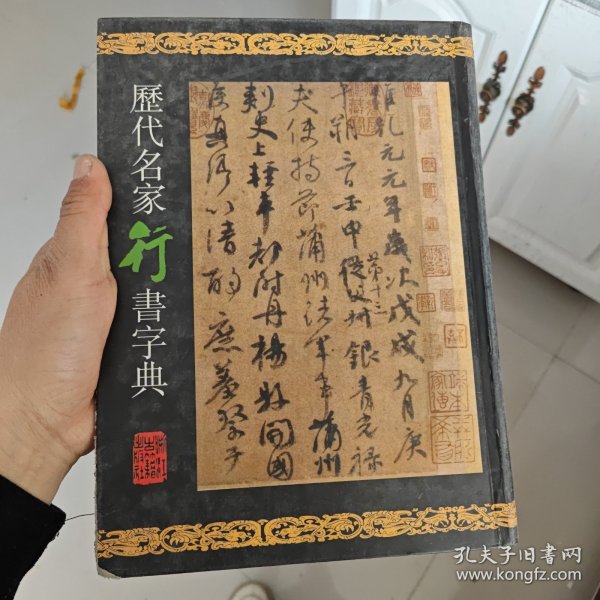 歷代名家行書字典
浙江
古籍
出版社
維乾元元年歲次戊戌九月庚
午朔三日壬申第十三從父叔銀青光祿
夫使持節蒲州諸軍事蒲州
刺史上輕車都尉丹楊縣開國
侯真卿以清酌庶羞祭于
孔夫子旧书网
www.kongfz.com